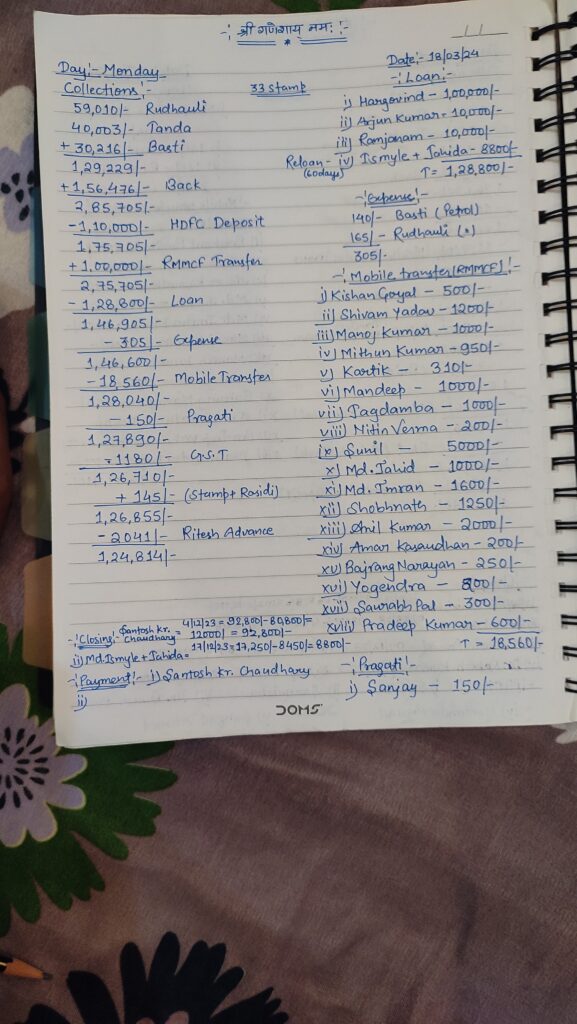 -: श्री गणेशाय नमः :-
Day:- Monday
Date:- 18/03/24
Collections:-
33 Stamp
59,010/- Rudhauli
40,003/- Tanda
+ 30,216/- Basti
1,29,229/-
+1,56,476/- Back
2,85,705/-
-1,10,000/- HDFC Deposit
1,75,705/-
+1,00,000/- RMMCF Transfer
2,75,705/-
-1,28,800/- Loan
1,46,905/-
- 305/- Expense
1,46,600/-
-18,560/- Mobile Transfer
1,28,040/-
-150/- Pragati
1,27,890/-
-1180/- G.S.T
1,26,710/-
+ 145/- (Stamp+ Rasidi)
1,26,855/-
- 2041/- Ritesh Advance
1,24,814/-
-: Loan:-
i) Hargovind - 1,00,000/-
ii) Arjun Kumar - 10,000/-
iii) Ramjanam - 10,000/-
Reloan - iv) Ismyle + Jahida - 8800/-
(60days)
T = 1,28,800/-
-: Expense:-
140/- Basti (Petrol)
165/- Rudhauli (")
305/-
-: Mobile transfer(RMMCF):-
i) Kishan Goyal - 500/-
ii) Shivam Yadav - 1200/-
iii) Manoj Kumar - 1000/-
iv) Mithun Kumar - 950/-
v) Kartik - 310/-
vi) Mandeep - 1000/-
vii) Jagdamba - 1000/-
viii) Nitin Verma - 200/-
ix) Sunil - 5000/-
x) Md. Jahid - 1000/-
xi) Md. Imran - 1600/-
xii) Shobhnath - 1250/-
xiii) Anil Kumar - 2000/-
xiv) Amar Kasaudhan - 200/-
xv) Bajrang Narayan - 250/-
xvi) Yogendra - 200/-
xvii) Saurabh Pal - 300/-
xviii) Pradeep Kumar - 600/-
T = 18,560/-
-: Closing:- Santosh kr. Chaudhary = 4/12/23 = 92,800/- 80,800/- =
12000/- = 92,800/-
ii) Md. Ismyle + Jahida = 17/12/23 = 17,250/- 8450/- = 8800/-
-: Payment:- i) Santosh Kr. Chaudhary
ii)
-: Pragati:-
i) Sanjay - 150/-
DOMS